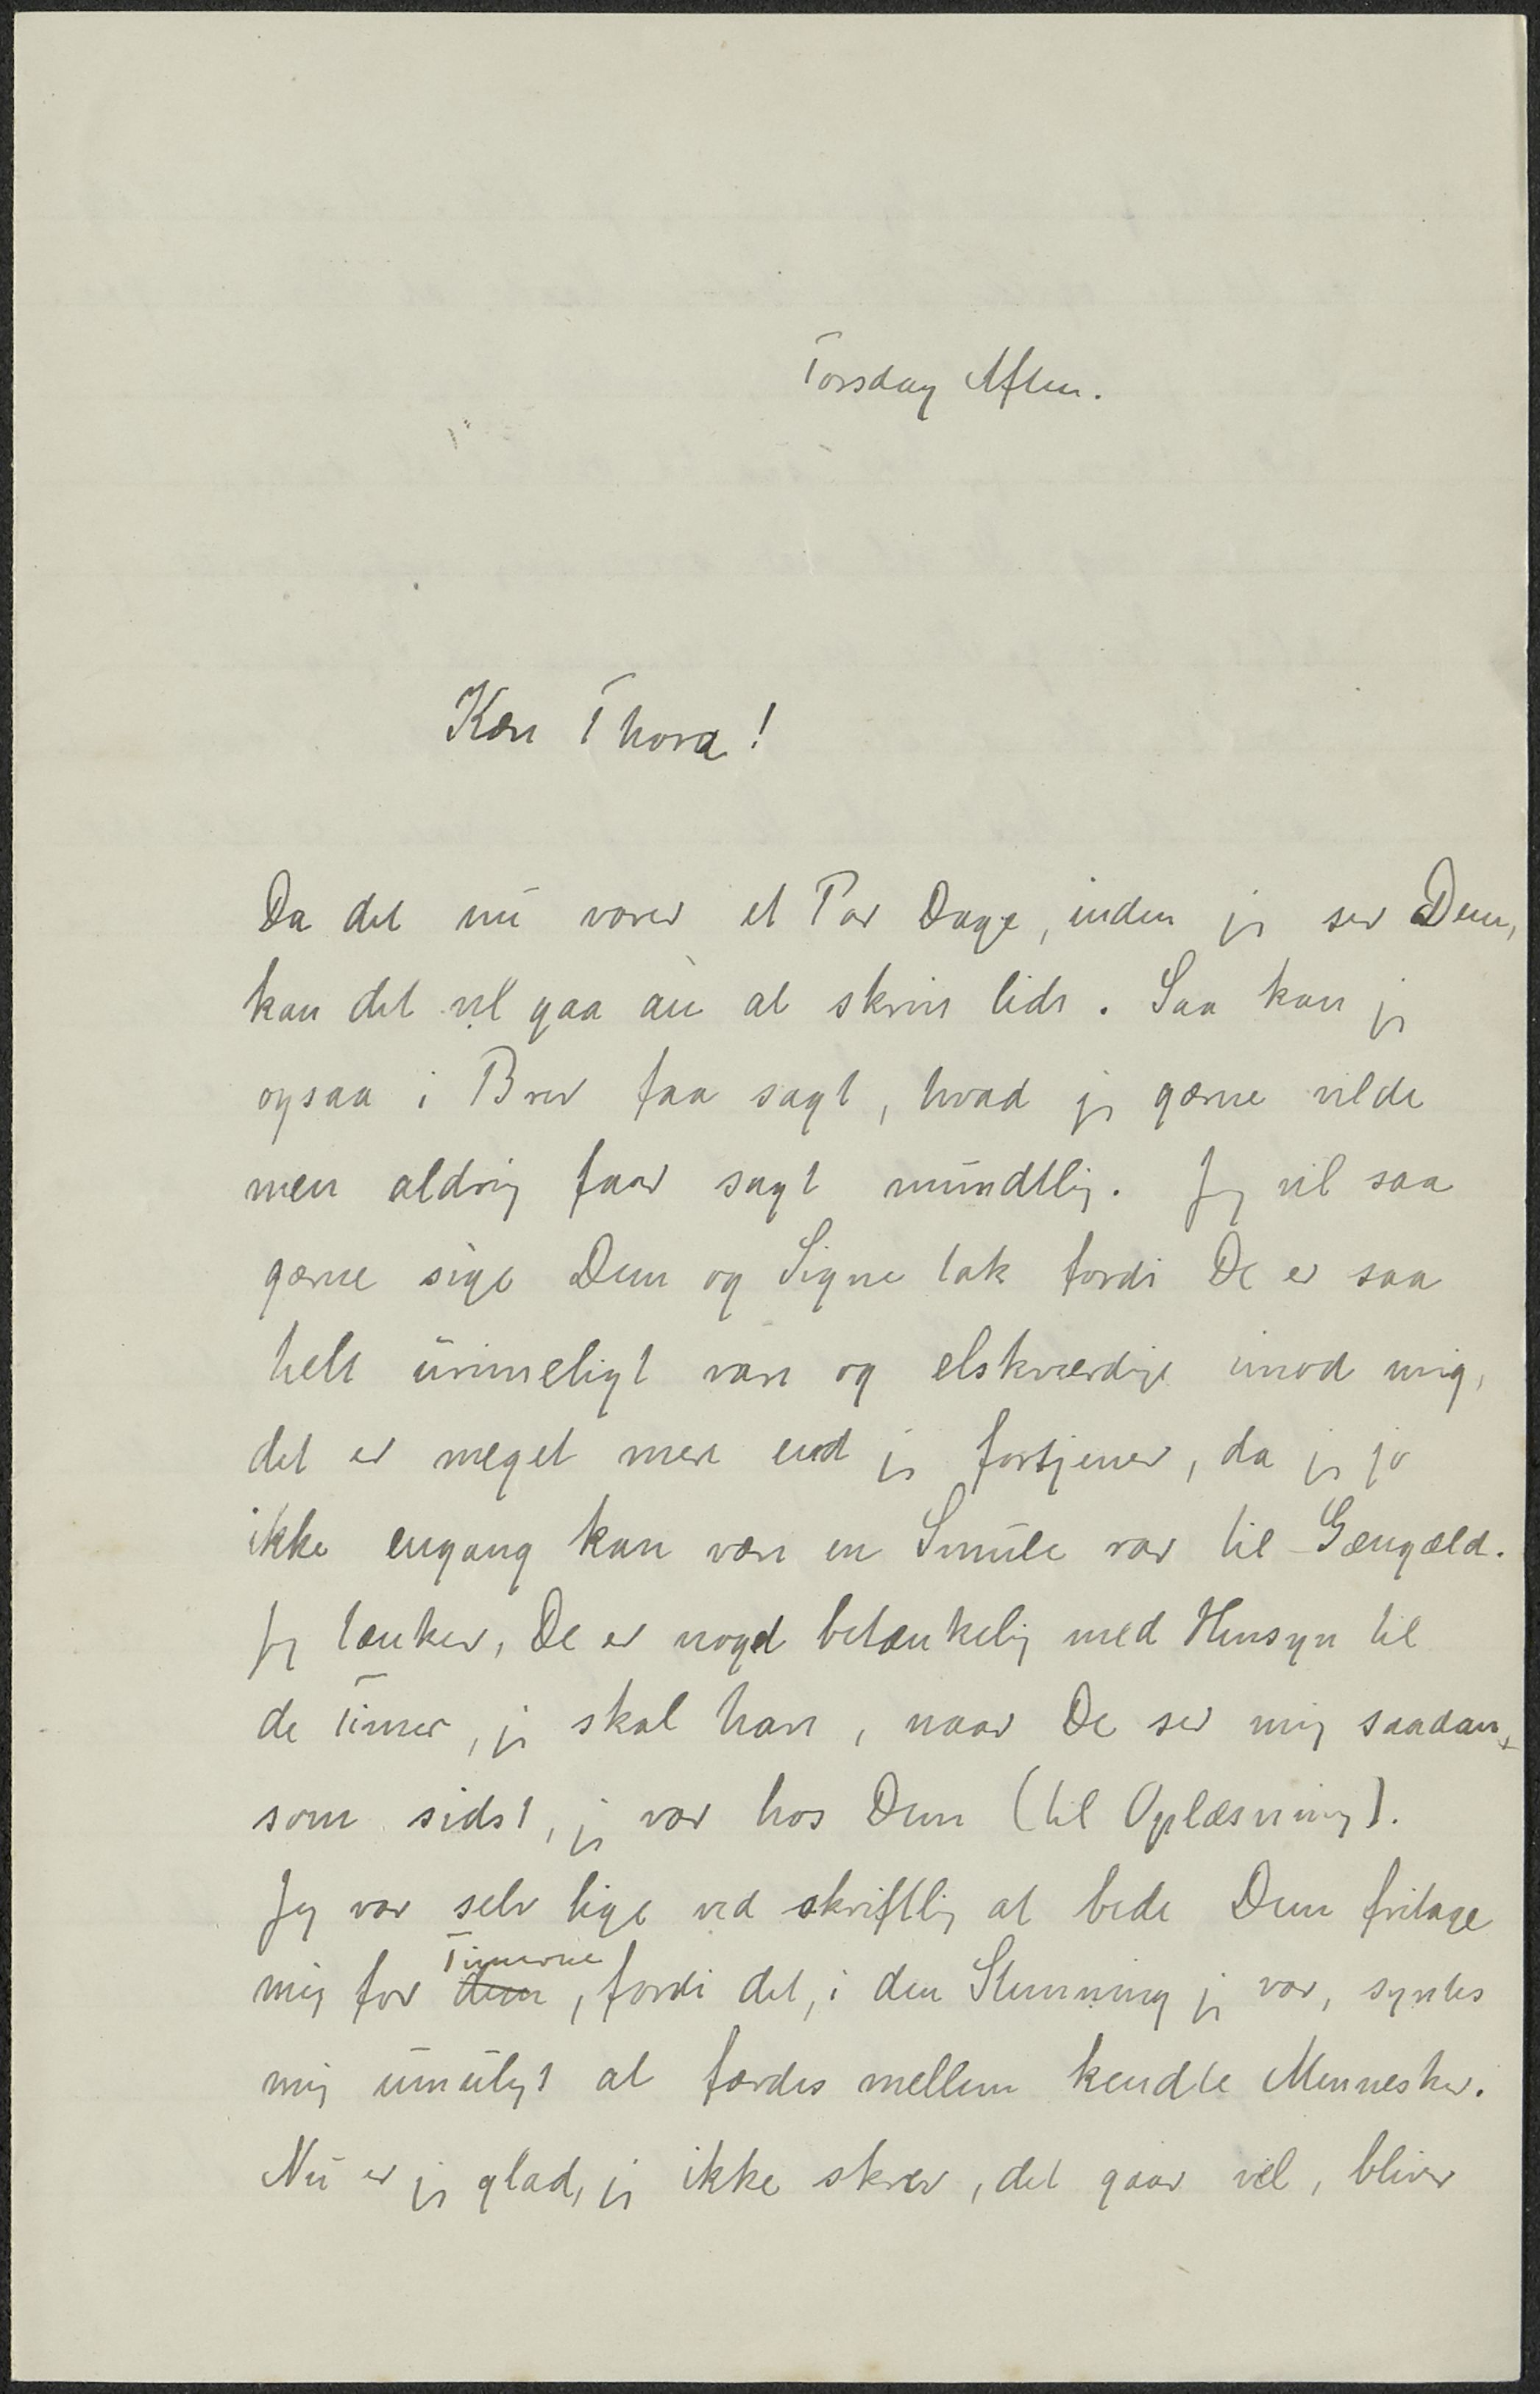 Torsdag Aften.
Kære Thora!
Da det nu varer et Par Dage, inden jeg ser Dem,
kan det vel gaa an at skrive lidt. Saa kan jeg
ogsaa i Brev faa sagt, hvad jeg gærne vilde
men aldrig faar sagt mundtlig. Jeg vil saa
gærne sige Dem og Signe tak fordi De er saa
helt urimeligt rare og elskværdige imod mig,
det er meget mere end jeg fortjener, da jeg jo
ikke engang kan være en Smule rar til Gængæld.
Jeg tænker, De er noget betænkelig med Hensyn til
de Timer, jeg skal have, naar De ser mig saadan,
som sidst, jeg var hos Dem (til Oplæsning).
Jeg var selv lige ved skriftlig at bede Dem fritage
Timerne
mig for dem, fordi det, i den Stemning jeg var, syntes
mig umuligt at færdes mellem kendte Mennesker.
Nu er jeg glad, jeg ikke skrev, det gaar vel, bliver